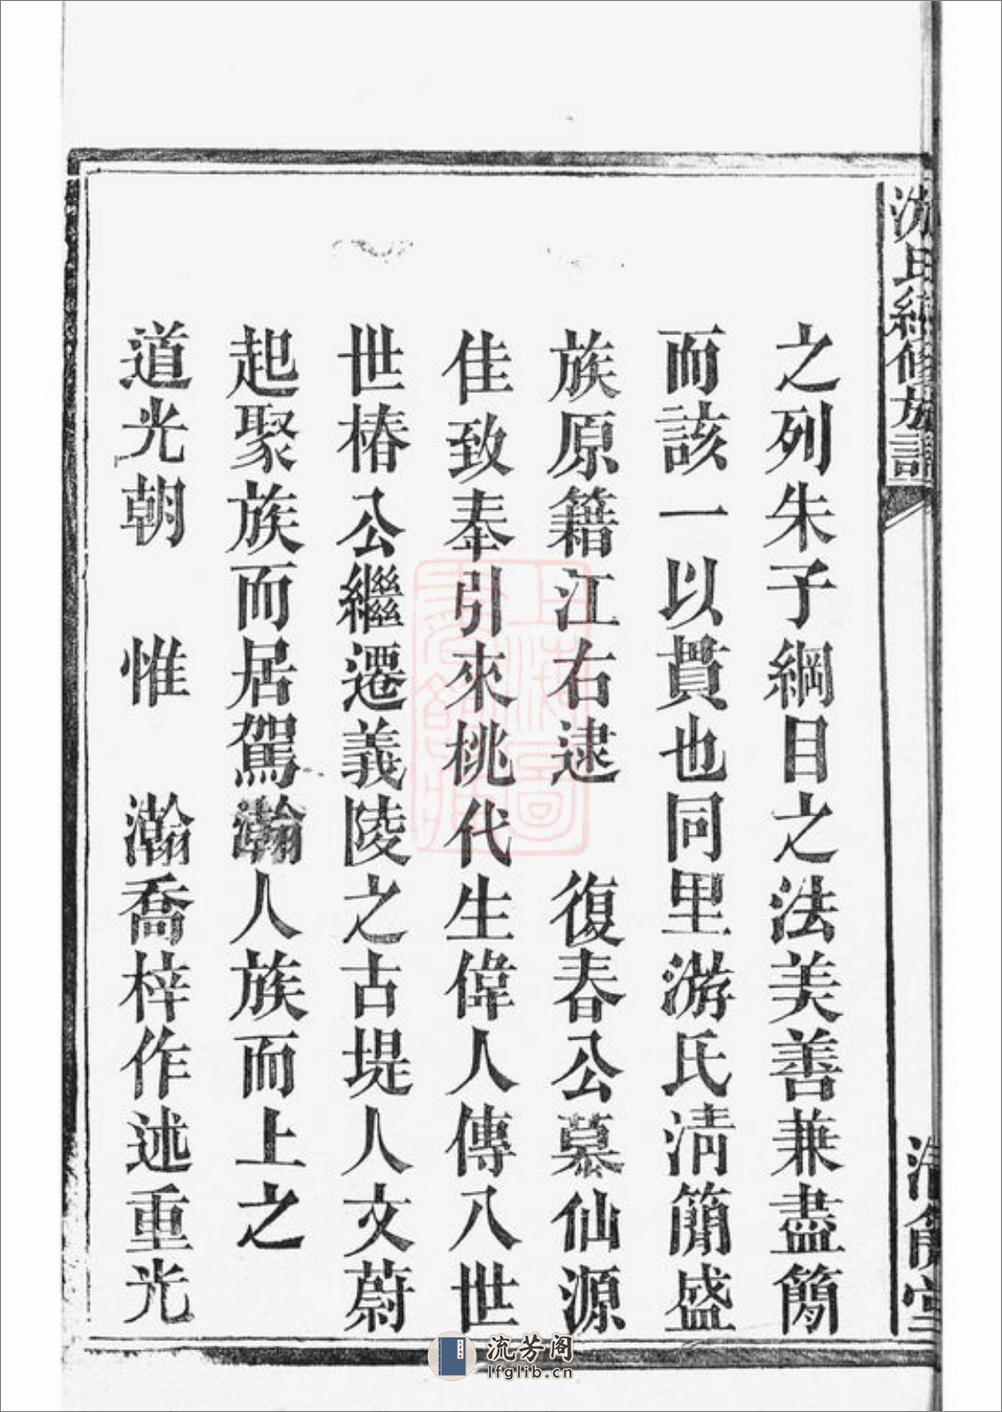 氏續修族譜
之列朱子綱目之法美善兼盡簡
而該一以貫也同里游氏清簡盛
族原籍江右逮 復春公慕仙源
佳致奉引來桃代生偉人傳八世
世椿公繼遷義陵之古堤人文蔚
起聚族而居駕瀚人族而上之
道光朝 惟 瀚喬梓作述重光
上海圖
流芳阁
lfglib.cn